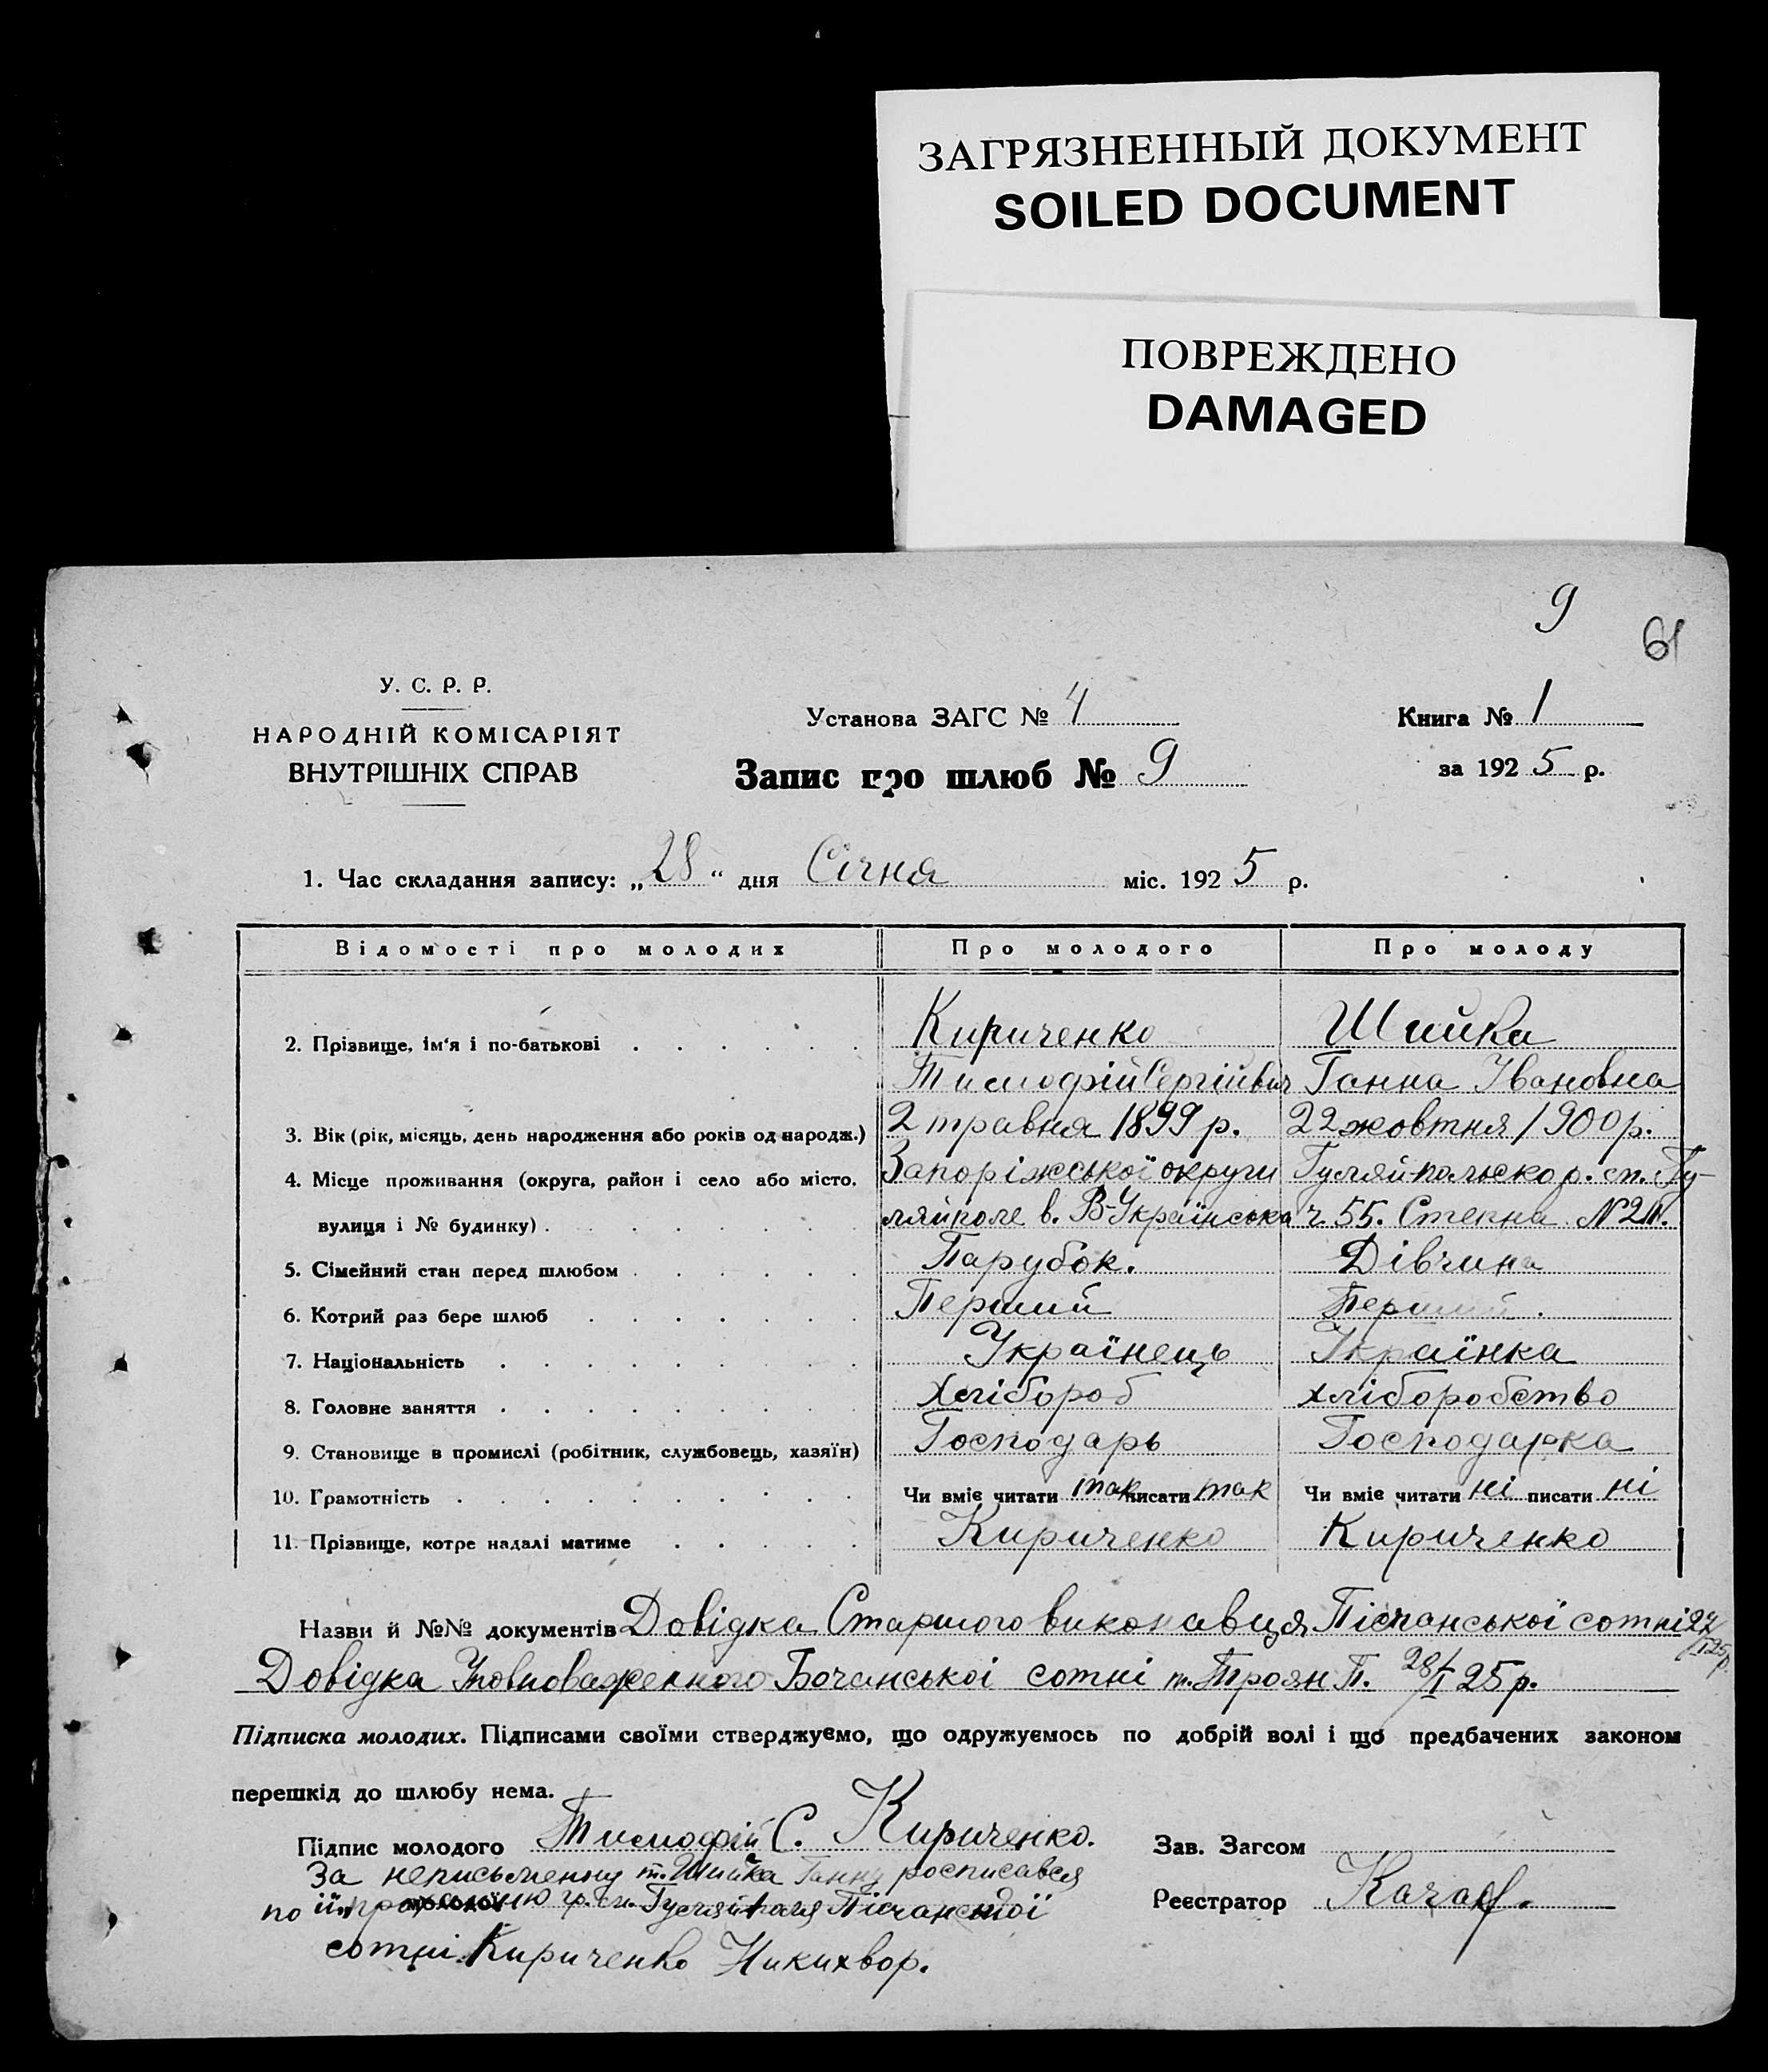 ЗАГРЯЗНЕННЫЙ ДОКУМЕНТ
SOILED DOCUMENT
ПОВРЕЖДЕНО
DAMAGED
9
61
У. С. Р. Р.
НАРОДНІЙ КОМІСАРІЯТ
ВНУТРІШНІХ СПРАВ
Установа ЗАГС № 4
Запис про шлюб № 9
Книга № 1
за 1925 р.
1. Час складання запису: „28“ дня Січня міс. 1925 р.
Відомості про молодих Про молодого Про молоду
2. Прізвище, ім‘я і по-батькові Кириченко Шийка
Тимофій Сергійвич Ганна Івановна
3. Вік (рік, місяць, день народження або років од народж.) 2 травня 1899 р. 22 жовтня 1900 р.
4. Місце проживання (округа, район і село або місто, Запоріжської округи Гуляй-польско р. сп. Гу-
вулиця і № будинку) ляйполе в. В-Українська ч. 55. Степна N 211.
5. Сімейний стан перед шлюбом Парубок. Дівчина
6. Котрий раз бере шлюб Перший Перший.
7. Національність Українець Українка
8. Головне заняття Хлібороб хліборобство
9. Становище в промислі (робітник, службовець, хазяїн) Господарь Господарка
10. Грамотність Чи вміє читати так писати так Чи вміє читати ні писати ні
11. Прізвище, котре надалі матиме Кириченко Кириченко
Назви й №№ документів Довідка Старшого виконавця Пісчанської сотні 27/I 25 р.
Довідка Уповноваженного Бочанської сотні т. Троян П. 28/I 25 р.
Підписка молодих. Підписами своїми стверджуємо, що одружуємось по добрій волі і що предбачених законом
перешкід до шлюбу нема.
Підпис молодого Тимофій С. Кириченко. Зав. Загсом
За неписьменну т. Шийка Ганну росписався
по її проханню гр. сп. Гуляйполя Пісчанської Реєстратор
сотні Кириченко Никихвор.